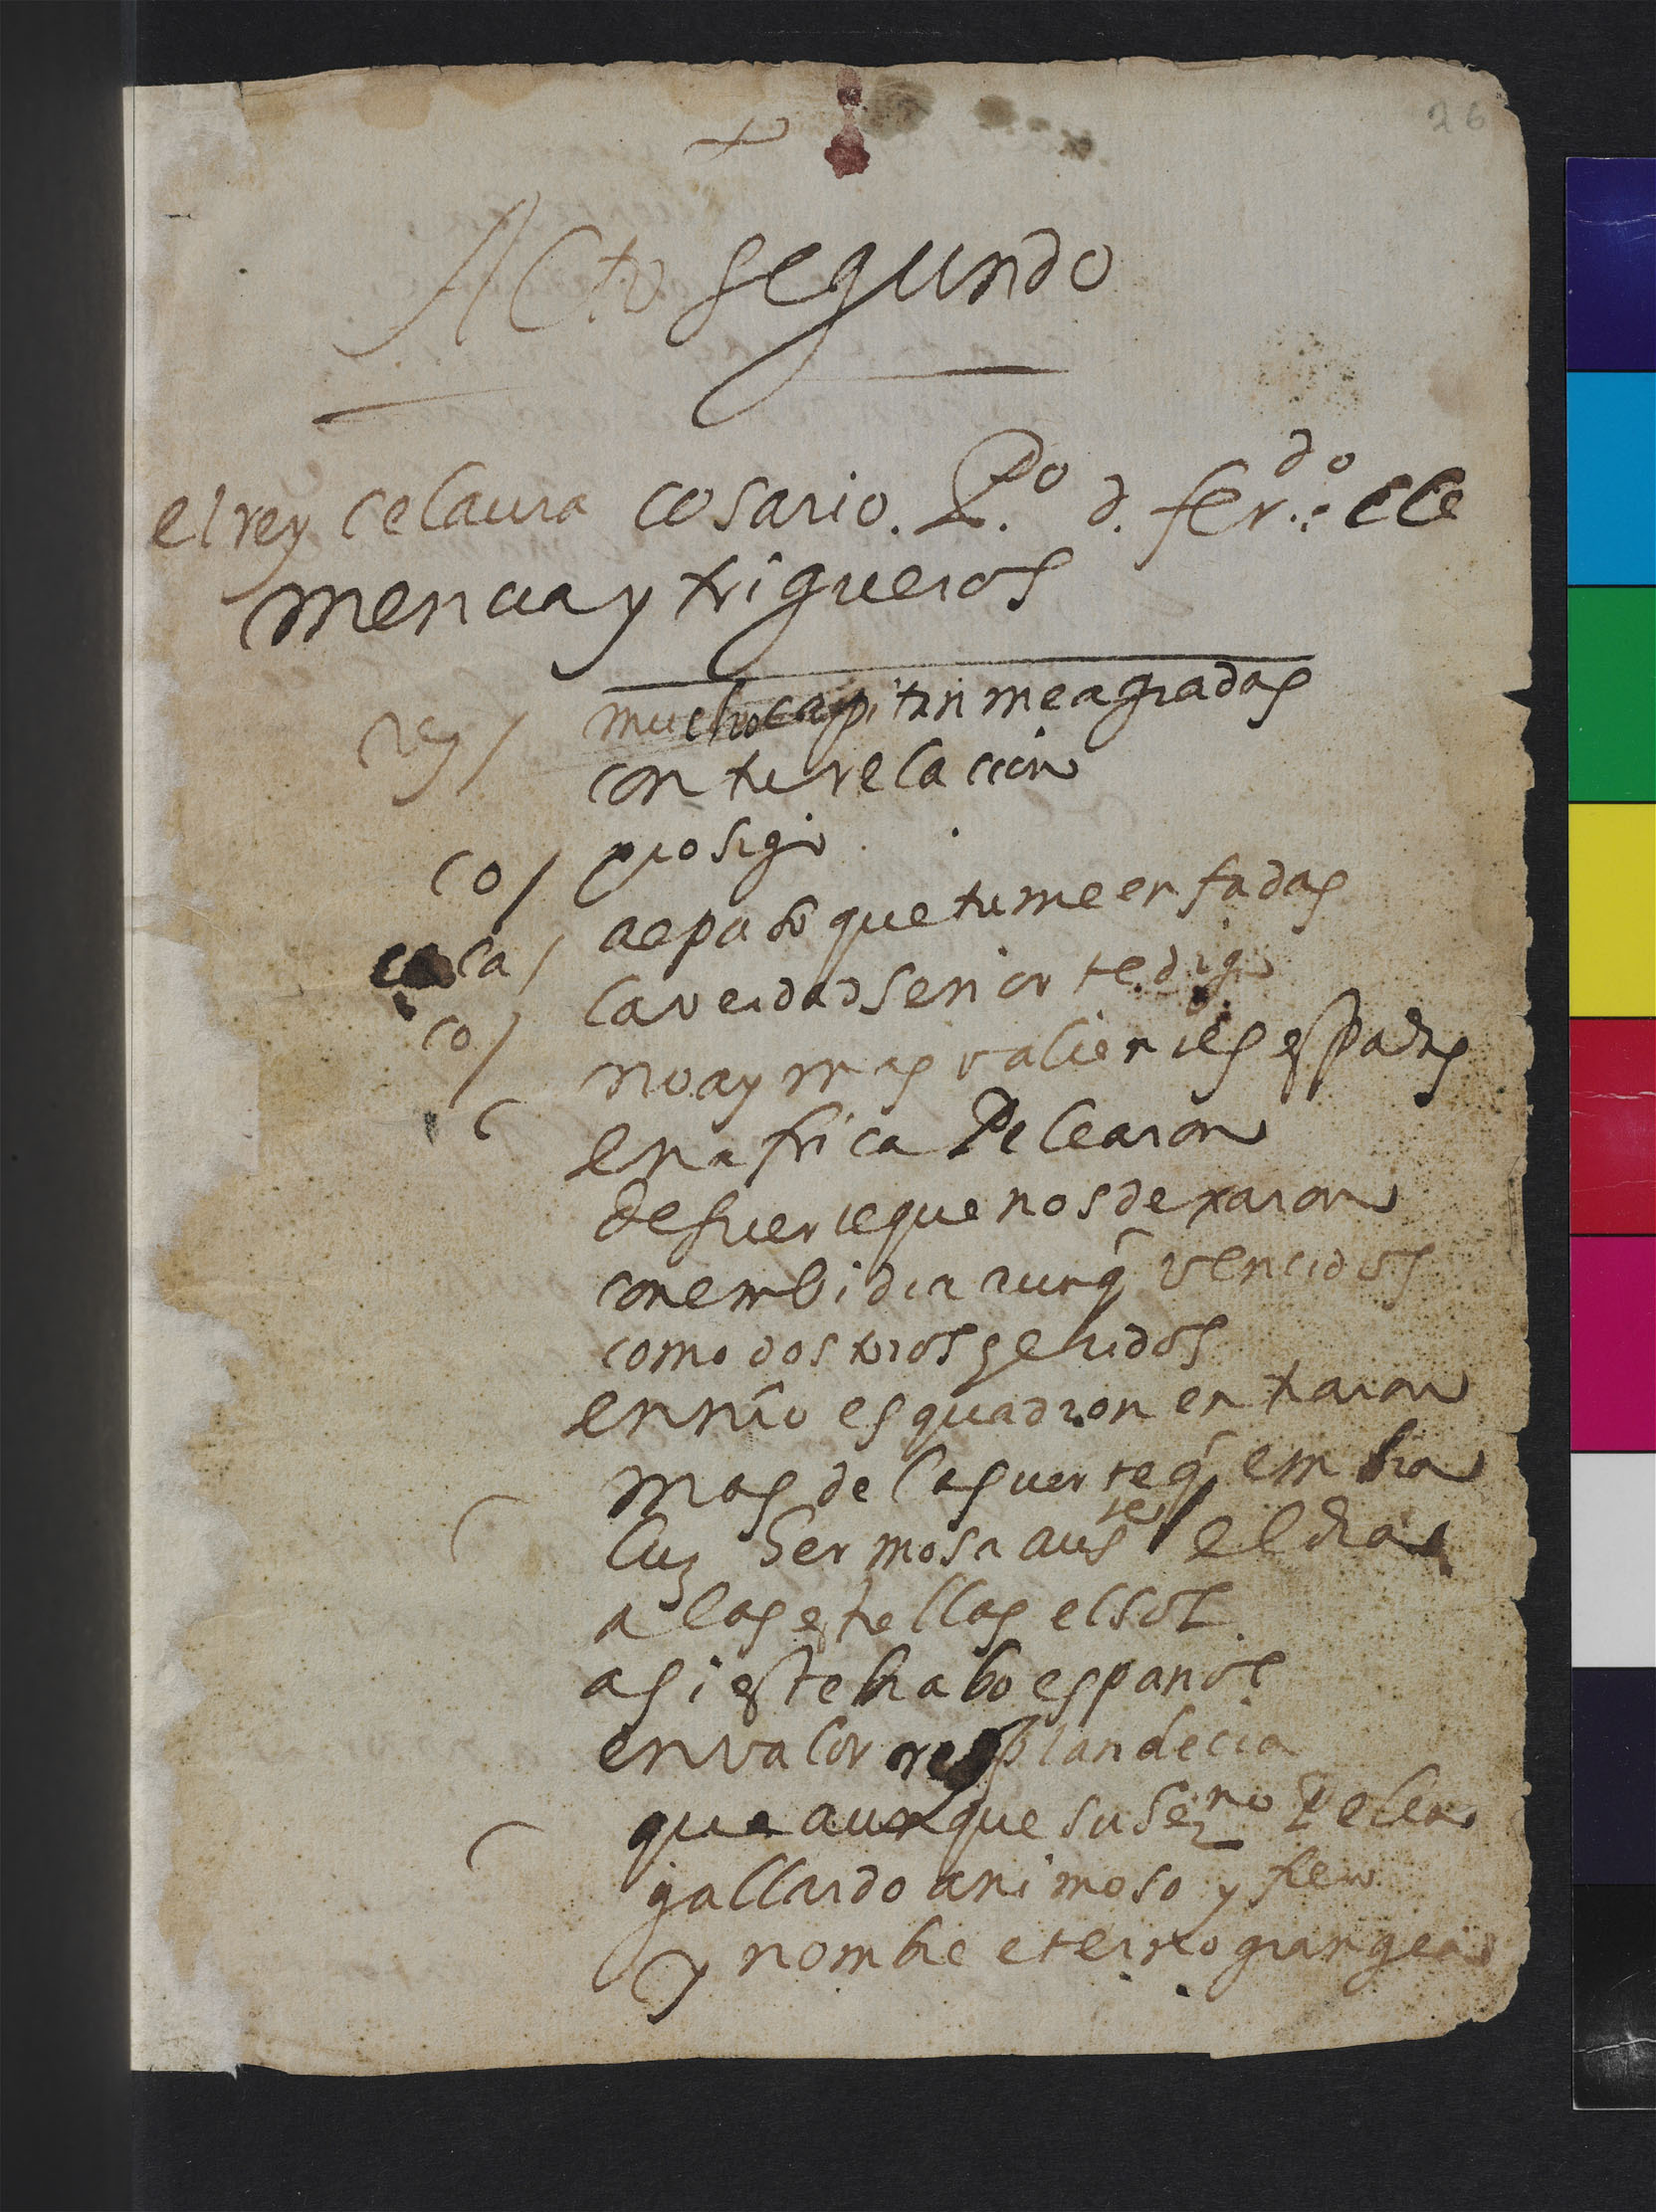 26
Acto segundo
el rey celaura cosario. P.º d. fer.do cle
mencia y trigueros
rey / mucho capitan me agradas
con tu relacion
co / prosigo
cela / aepaso que tu me enfadas
co / la verdad señor te digo
no ay mas valientes espadas
en africa Pelearon
de suerte que nos dexaron
con embidia aunq̃ vencidos
como dos toros heridos
en nr̃o esquadron entraron
mas de la suerte q̃ embia
luz hermosa ausente el dia
a las estrellas el sol
asi este brabo español
en valor resplandecia
que aunque su herno Pelea
gallardo animoso y fiero
y nombre eterno grangea